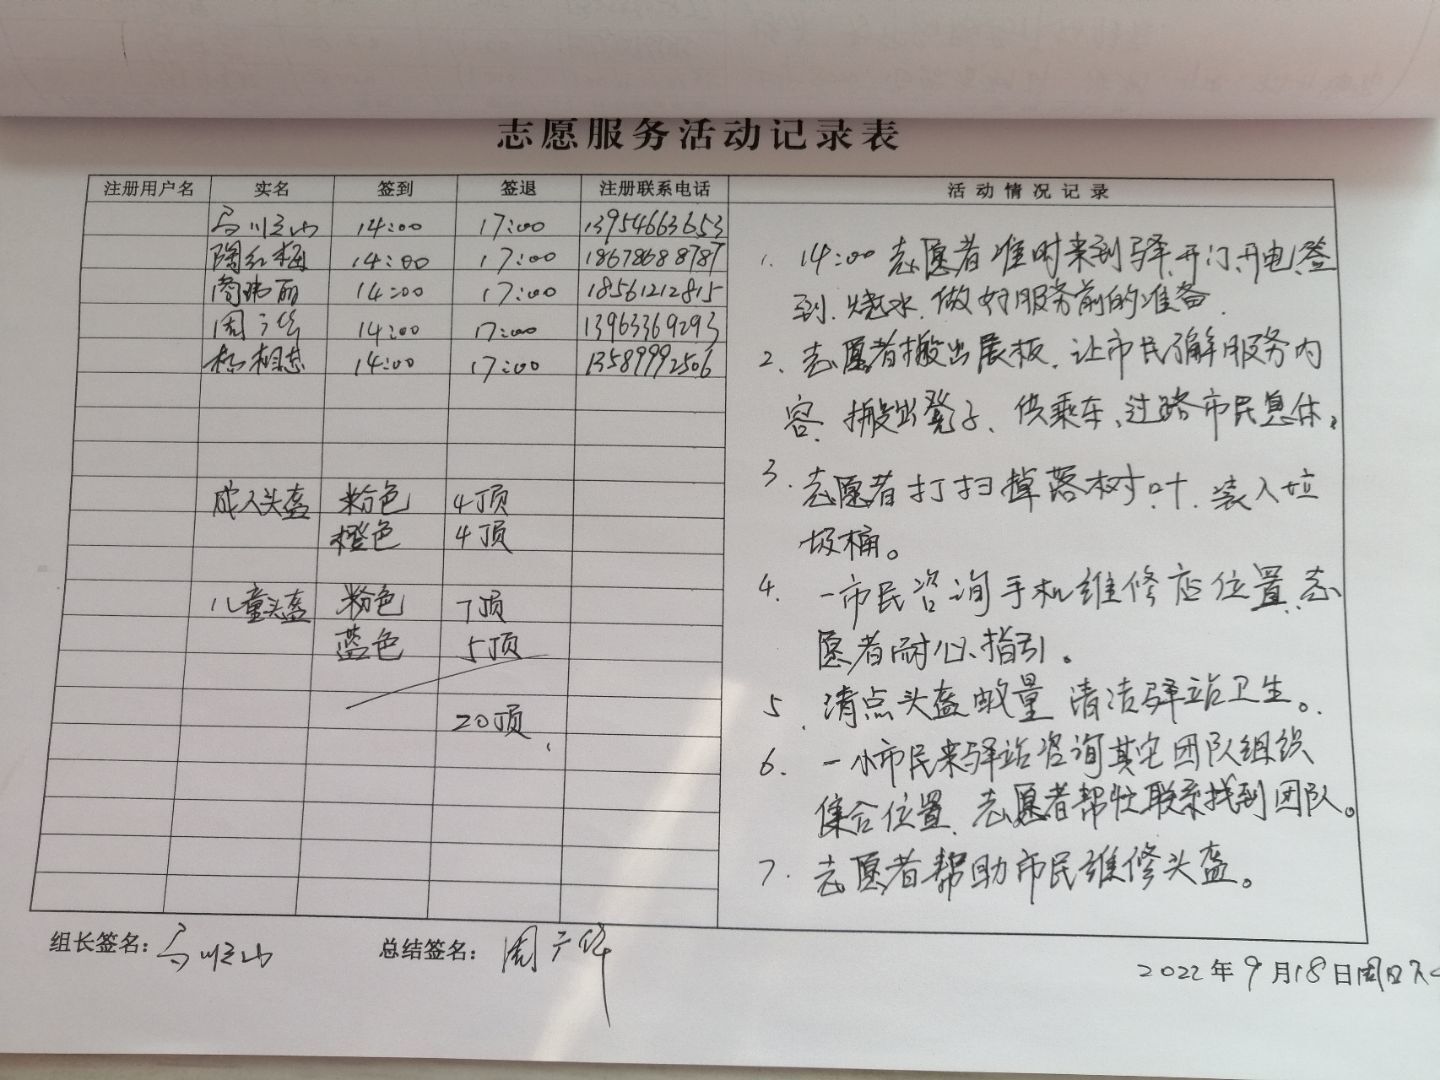 志愿服务活动记录表
注册用户名 实名 签到 签退 注册联系电话 活动情况记录
马顺山 14:00 17:00 13954663653
陶红梅 14:00 17:00 18678688787
14:00 17:00 18561212815
周广华 14:00 17:00 13963369293
14:00 17:00 13589992506
成人头盔 粉色 4顶
橙色 4顶
儿童头盔 粉色 7顶
蓝色 5顶
20顶
1. 14:00 志愿者准时来到驿站,开门、开电、签
到、烧水、做好服务前的准备.
2. 志愿者搬出展板,让市民了解服务内
容、搬出凳子、供乘车、过路市民息休,
3. 志愿者打扫掉落树叶,装入垃
圾桶。
4. 一市民咨询手机维修店位置,志
愿者耐心指引。
5. 清点头盔数量 清洁驿站卫生。
6. 一小市民来驿站咨询其它团队组织
集合位置,志愿者帮忙联系找到团队。
7. 志愿者帮助市民维修头盔。
组长签名:马顺山 总结签名:周广华
2022年9月18日周日